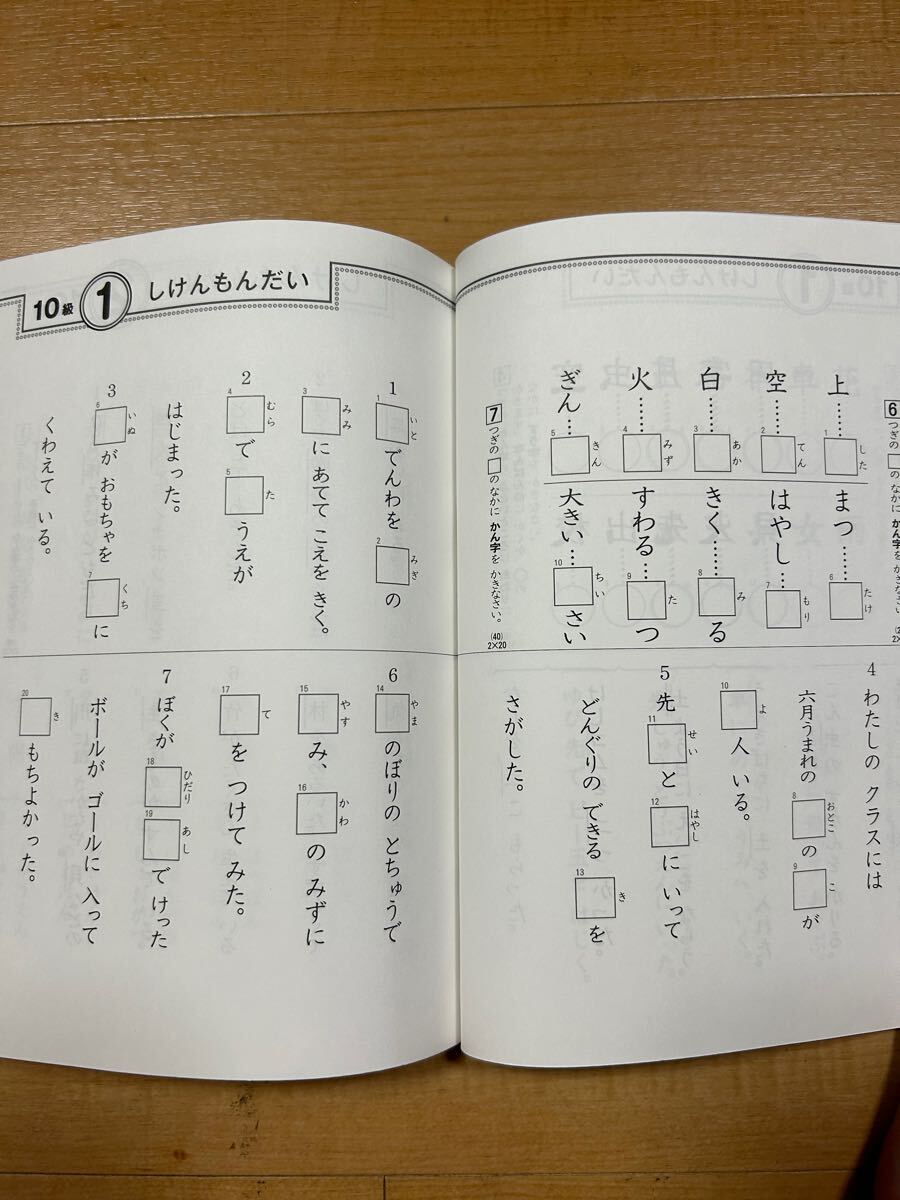 10級 1 しけんもんだい
6 つぎの □の なかに かん字を かきなさい。
上……1□した
空……2□てん
白……3□あか
火……4□みず
ぎん…5□きん
まつ……6□たけ
はやし…7□もり
きく……8□みる
すわる…9□たつ
大きい…10□ちいさい
7 つぎの □の なかに かん字を かきなさい。 (40) 2×20
1
1□いとでんわを 2□みぎの
3□みみに あてて こえを きく。
2
4□むらで 5□たうえが
はじまった。
3
6□いぬが おもちゃを 7□くちに
くわえて いる。
4 わたしの クラスには
六月うまれの 8□おとこの9□こが
10□よ人 いる。
5 先11□せいと 12□はやしに いって
どんぐりの できる 13□きを
さがした。
6 14□やまのぼりの とちゅうで
15□やすみ、16□かわの みずに
17□てを つけて みた。
7 ぼくが 18□ひだり19□あしで けった
ボールが ゴールに 入って
20□きもちよかった。